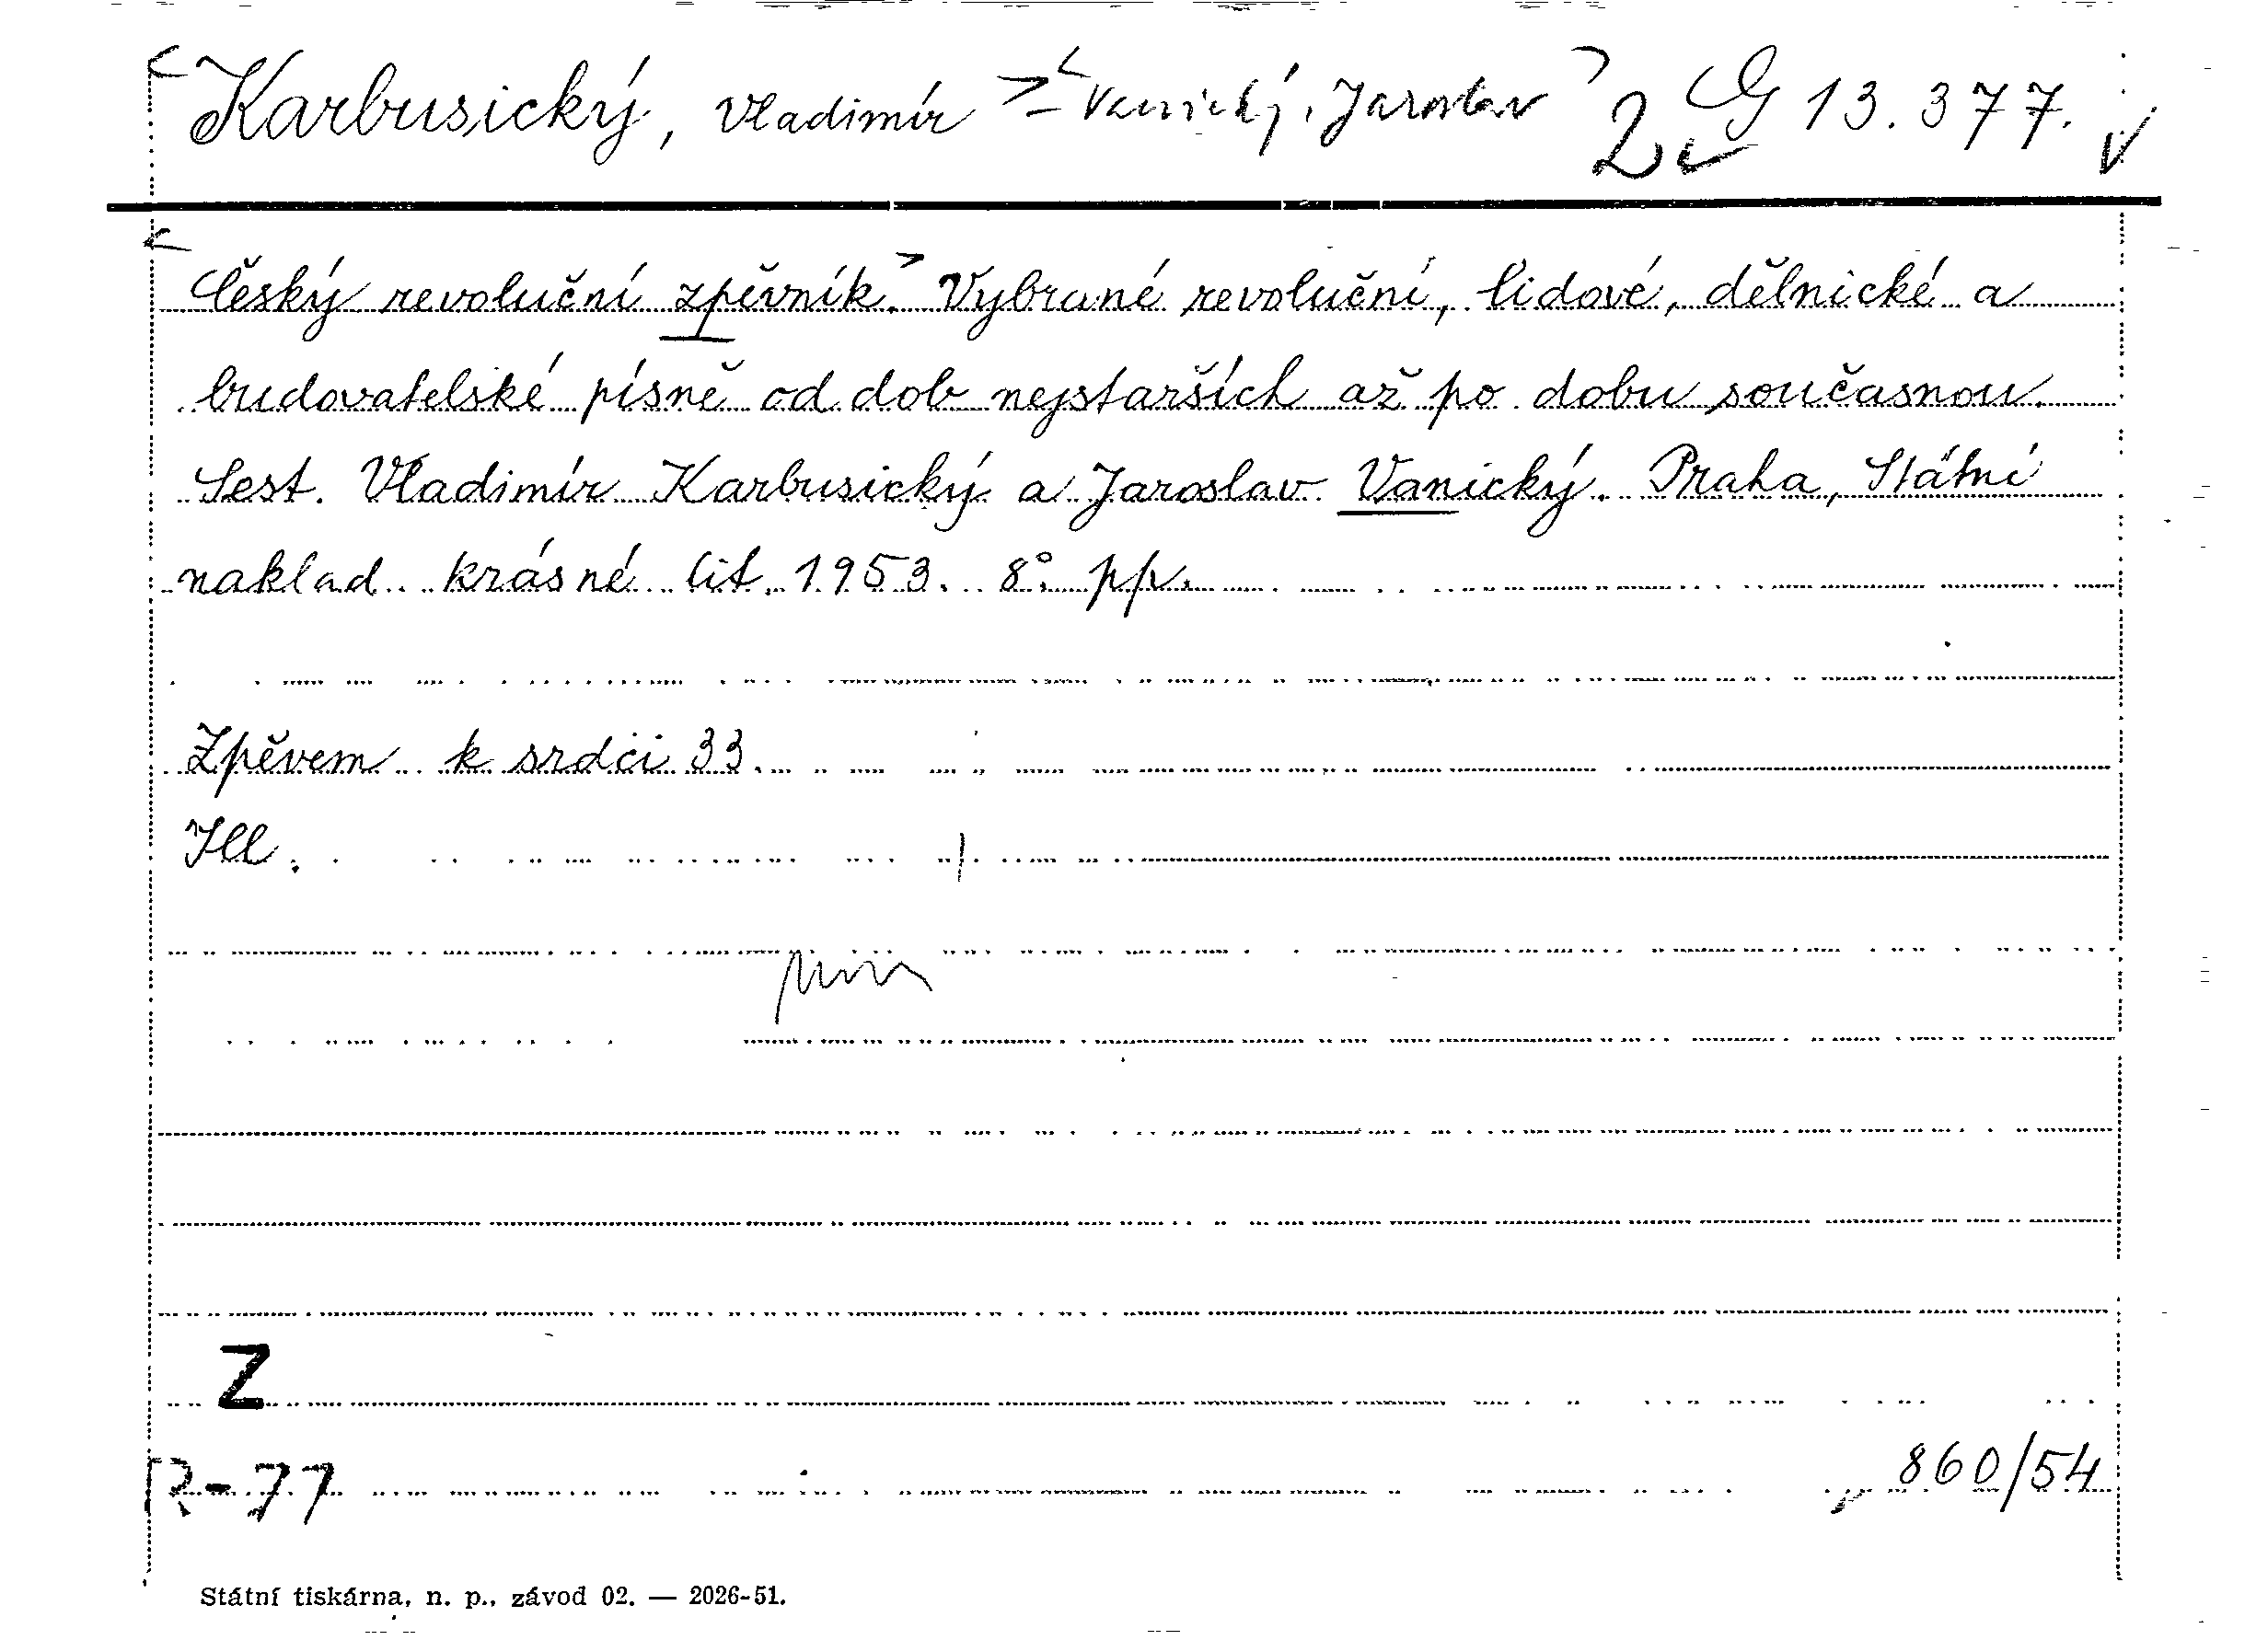 Karbusický, Vladimír = Vanický, Jaroslav 2 G 13.377.
Český revoluční zpěvník. Vybrané revoluční, lidové, dělnické a
budovatelské písně od dob nejstarších až po dobu současnou.
Sest. Vladimír Karbusický a Jaroslav Vanický. Praha, Státní
naklad. krásné lit. 1953. 8°. pp.
Zpěvem k srdci 33.
Ill.
Z
R-77
860/54
Státní tiskárna, n. p., závod 02. — 2026-51.